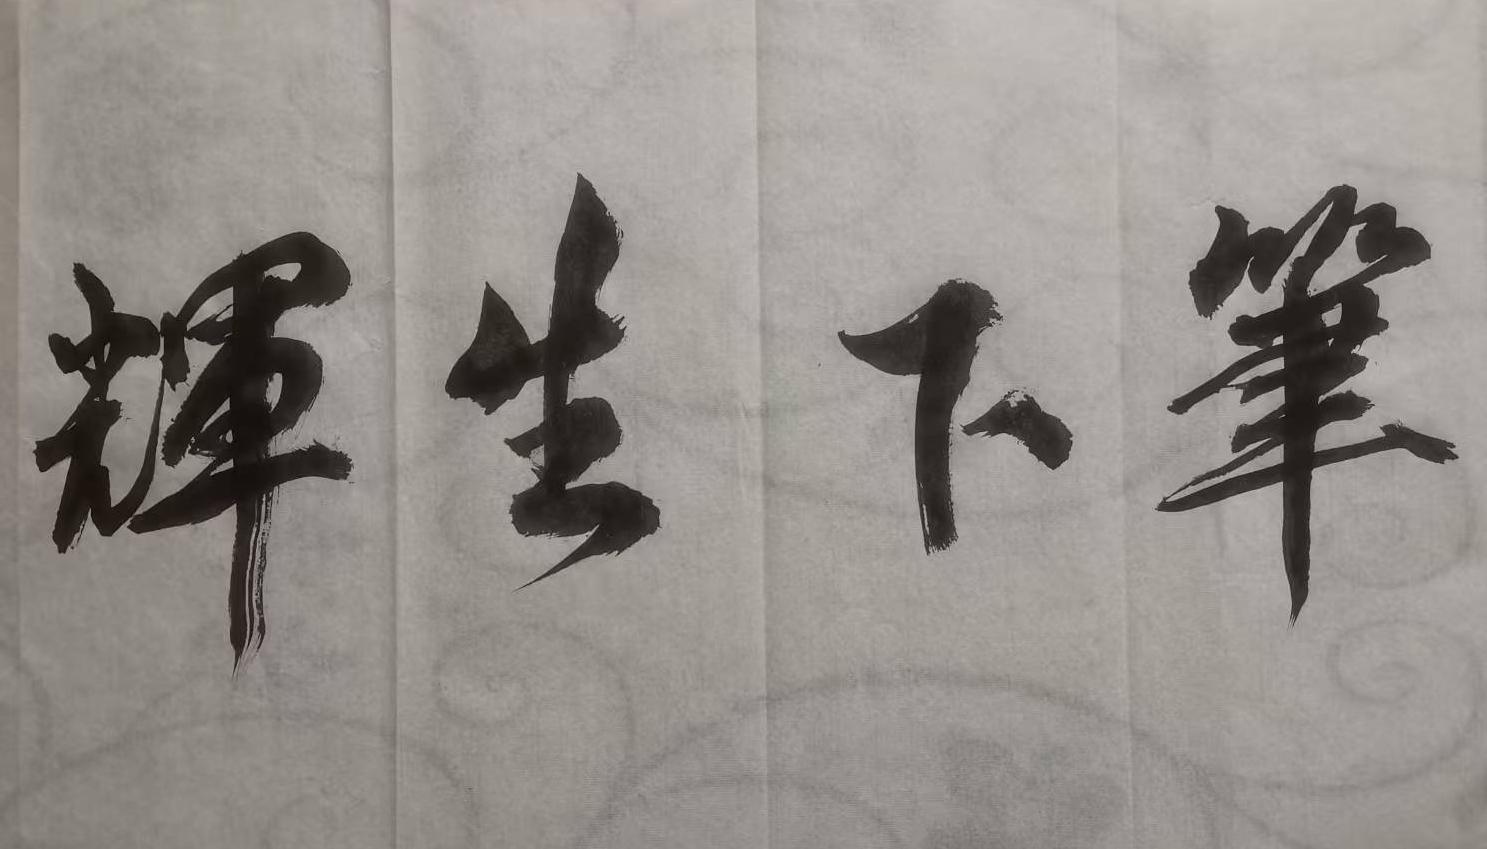 筆下生輝